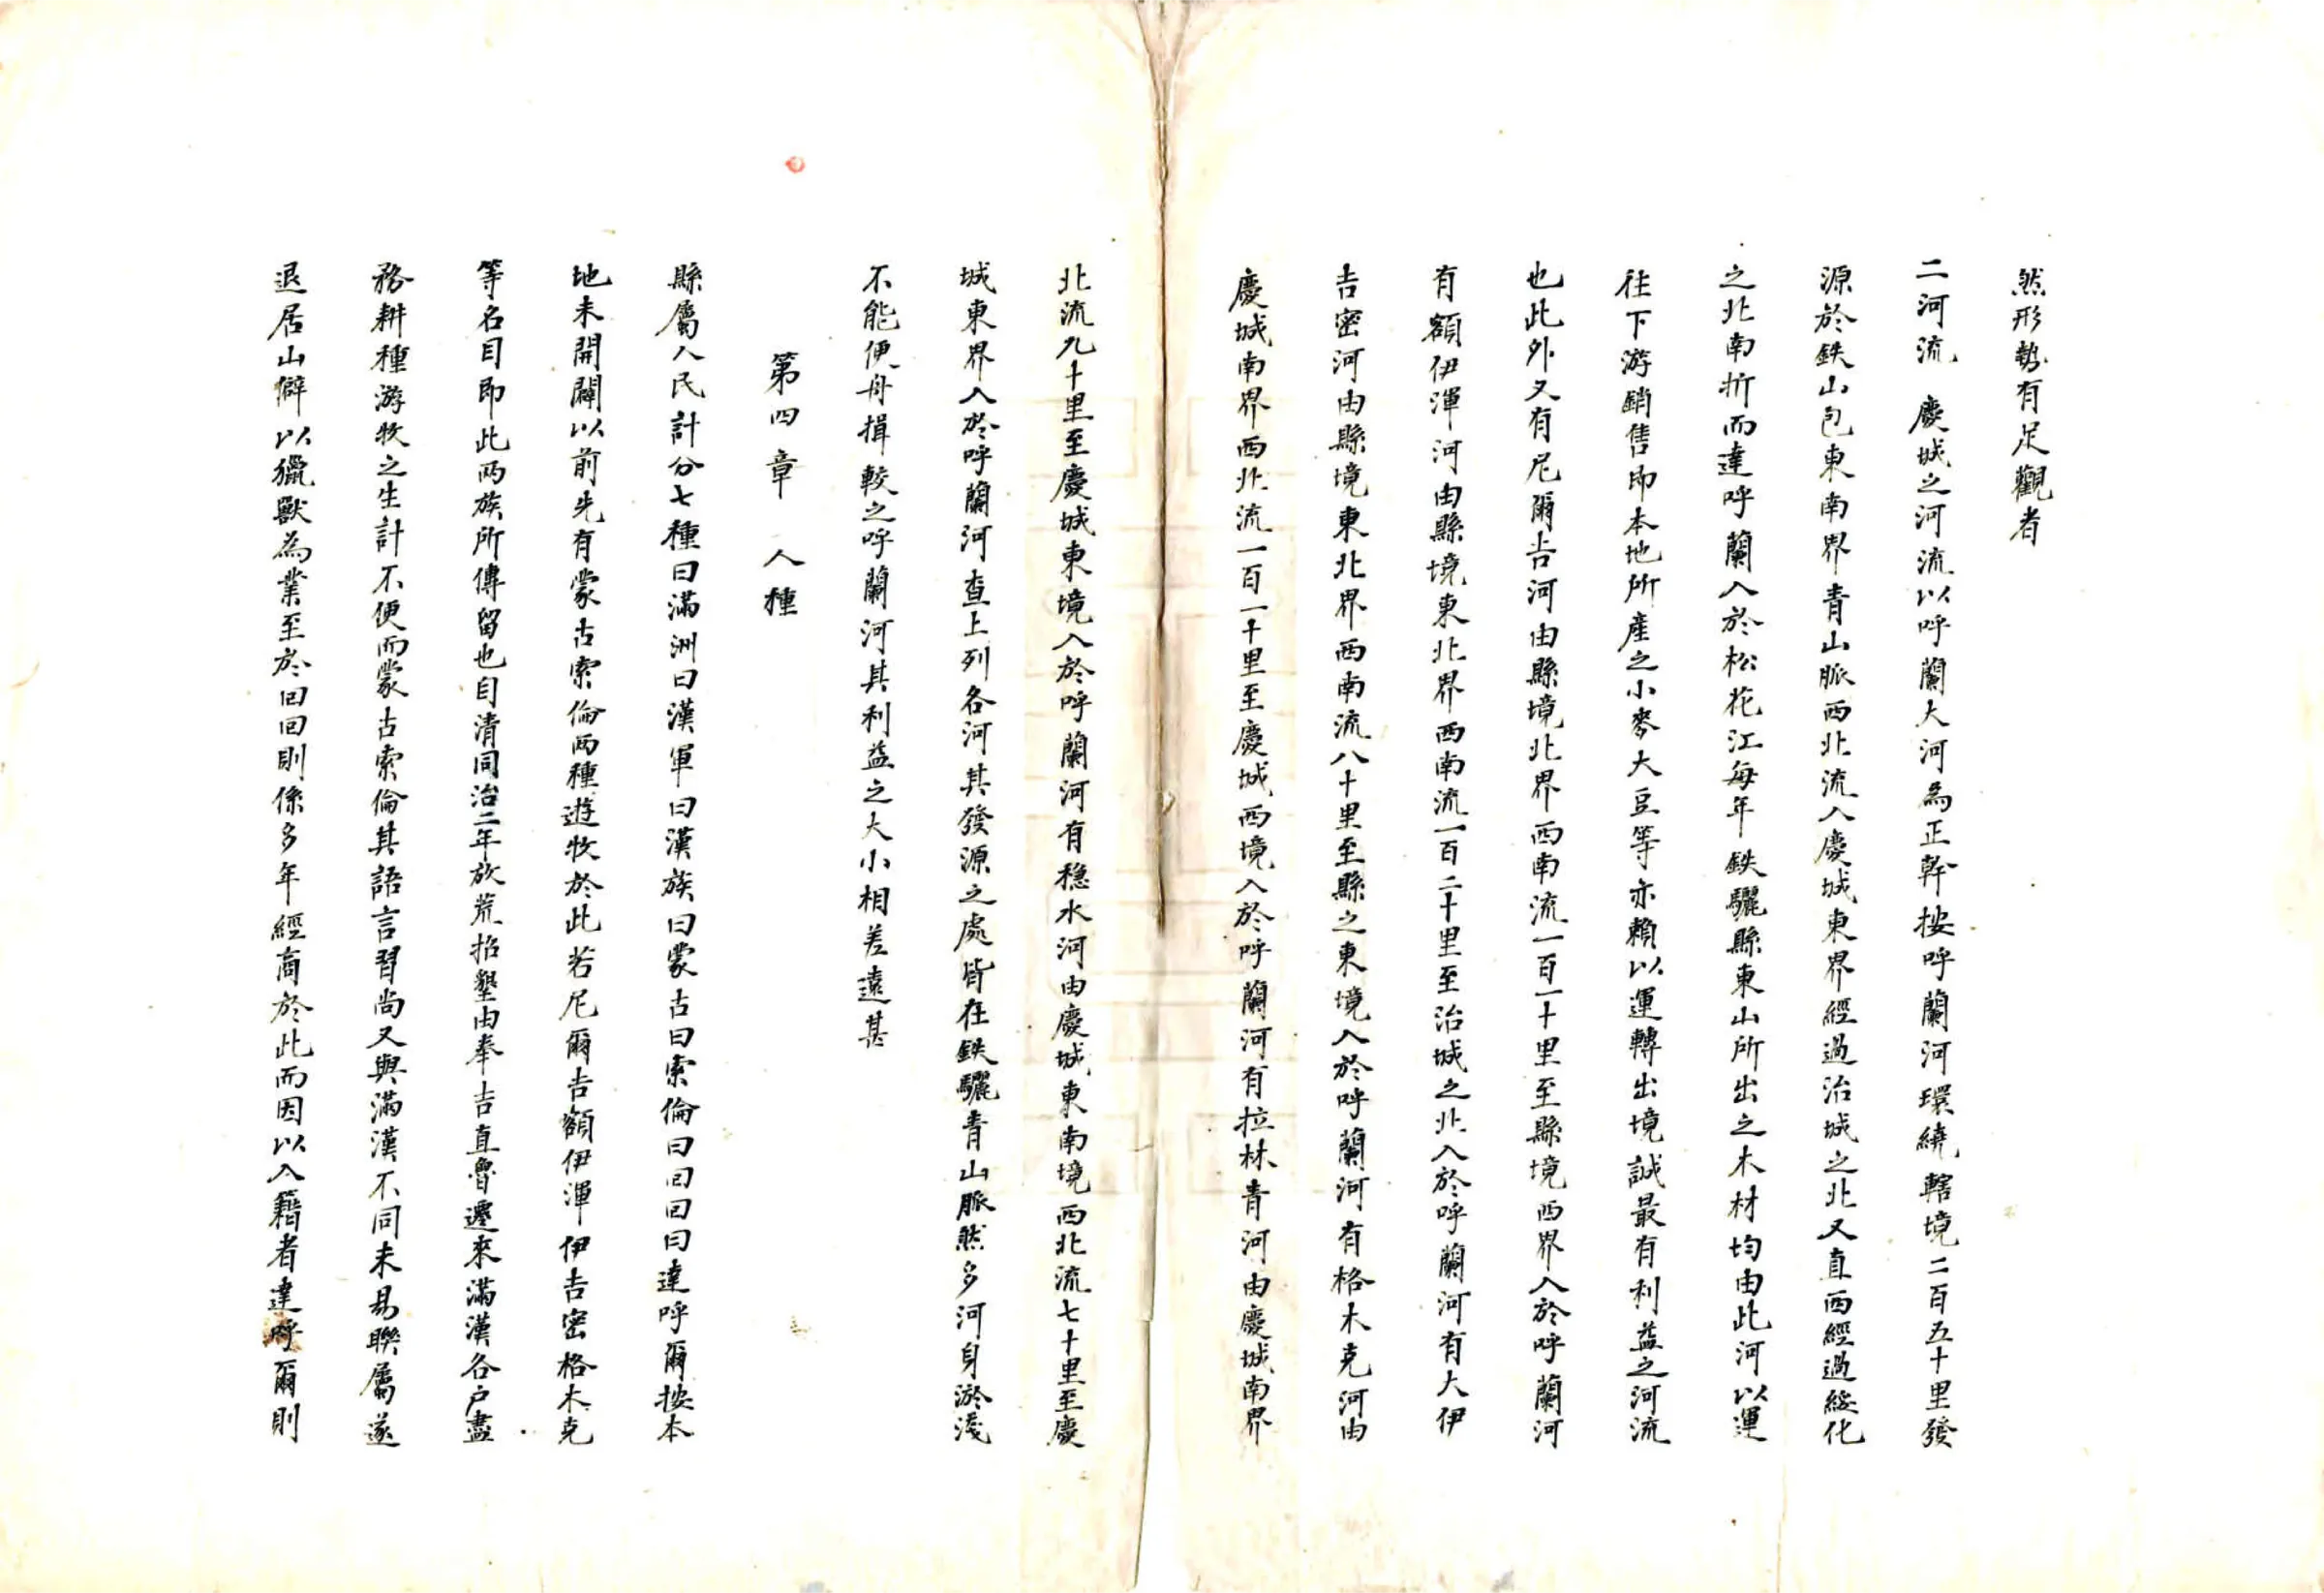 然形勢有足觀者
二河流　慶城之河流以呼蘭大河為正幹按呼蘭河環繞轄境二百五十里發
源於鉄山包東南界青山脈西北流入慶城東界經過治城之北又直西經過綏化
之北南折而達呼蘭入於松花江每年鉄驪縣東山所出之木材均由此河以運
往下游銷售即本地所產之小麥大豆等亦賴以運轉出境誠最有利益之河流
也此外又有尼爾吉河由縣境北界西南流一百一十里至縣境西界入於呼蘭河
有額伊渾河由縣境東北界西南流一百二十里至治城之北入於呼蘭河有大伊
吉密河由縣境東北界西南流八十里至縣之東境入於呼蘭河有格木克河由
慶城南界西北流一百一十里至慶城西境入於呼蘭河有拉林青河由慶城南界
北流九十里至慶城東境入於呼蘭河有穩水河由慶城東南境西北流七十里至慶
城東界入於呼蘭河查上列各河其發源之處皆在鉄驪青山脈然多河身淤淺
不能便舟揖較之呼蘭河其利益之大小相差遠甚
第四章　人種
縣屬人民計分七種曰滿洲曰漢軍曰漢族曰蒙古曰索倫曰回回曰達呼爾按本
地未開闢以前先有蒙古索倫兩種遊牧於此若尼爾吉額伊渾伊吉密格木克
等名目即此兩族所傳留也自清同治二年放荒招墾由奉吉直魯遷來滿漢各戶盡
務耕種游牧之生計不便而蒙古索倫其語言習尚又與滿漢不同未易聯屬遂
退居山僻以獵獸為業至於回回則係多年經商於此而因以入籍者達呼爾則